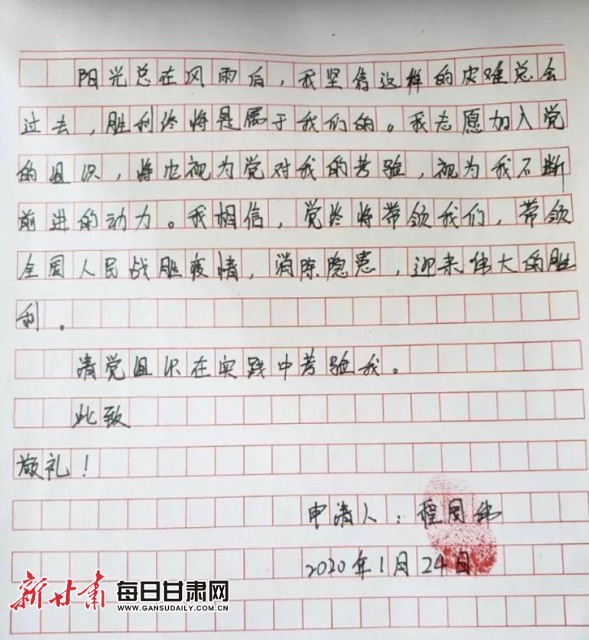 阳光总在风雨后，我坚信这样的灾难总会
过去，胜利终将是属于我们的。我志愿加入党
的组织，将它视为党对我的考验，视为我不断
前进的动力。我相信，党终将带领我们，带领
全国人民战胜疫情，消除隐患，迎来伟大的胜
利。
请党组织在实践中考验我。
此致
敬礼！
申请人：程国
2020年1月24日
新甘肃 每日甘肃网
WWW.GANSUDAILY.COM.CN